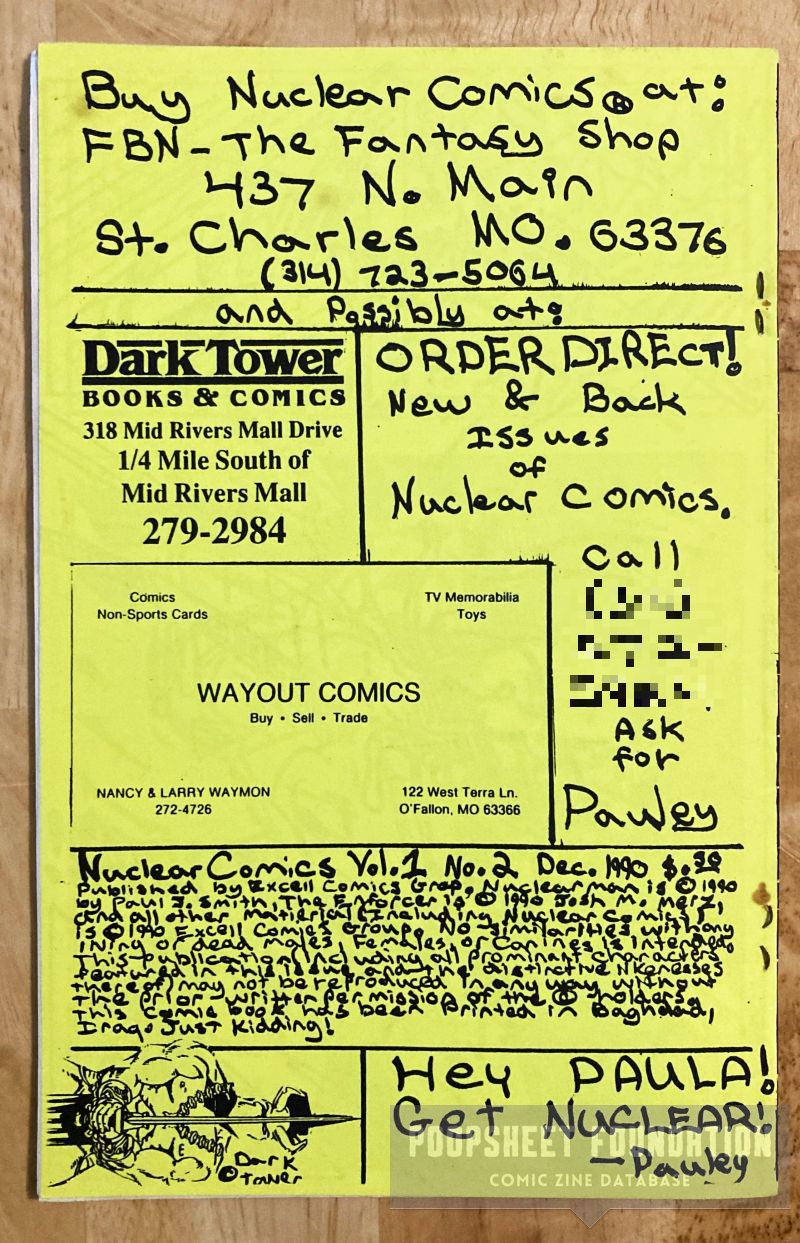 Buy Nuclear Comics® at:
FBN-The Fantasy Shop
437 N. Main
St. Charles MO. 63376
(314) 723-5064
and Possibly at:
Dark Tower
BOOKS & COMICS
318 Mid Rivers Mall Drive
1/4 Mile South of
Mid Rivers Mall
279-2984
ORDER DIRECT!
New & Back
Issues
of
Nuclear Comics.
Call
Ask
for
Pauley
Comics
Non-Sports Cards
TV Memorabilia
Toys
WAYOUT COMICS
Buy • Sell • Trade
NANCY & LARRY WAYMON
272-4726
122 West Terra Ln.
O'Fallon, MO 63366
Nuclear Comics Vol. 1 No. 2 Dec. 1990 $.50
Published by Excell Comics Grop. Nuclearman is © 1990
by Paul J. Smith, The Enforcer is © 1990 Josh M. Merz,
and all other matierial (Including Nuclear Comics)
is © 1990 Excell Comics Group. No similarities with any
living or dead males, females, or Canines is intended.
This publication (including all prominant characters
featured in this issue and the distinctive likenesses
thereof) may not be reproduced in any way without
the prior written permission of the © holders.
This comic book has been printed in Baghdad,
Iraq. Just kidding!
Dark
© Tower
Hey PAULA!
Get NUCLEAR!
-Pauley
POOPSHEET FOUNDATION
COMIC ZINE DATABASE